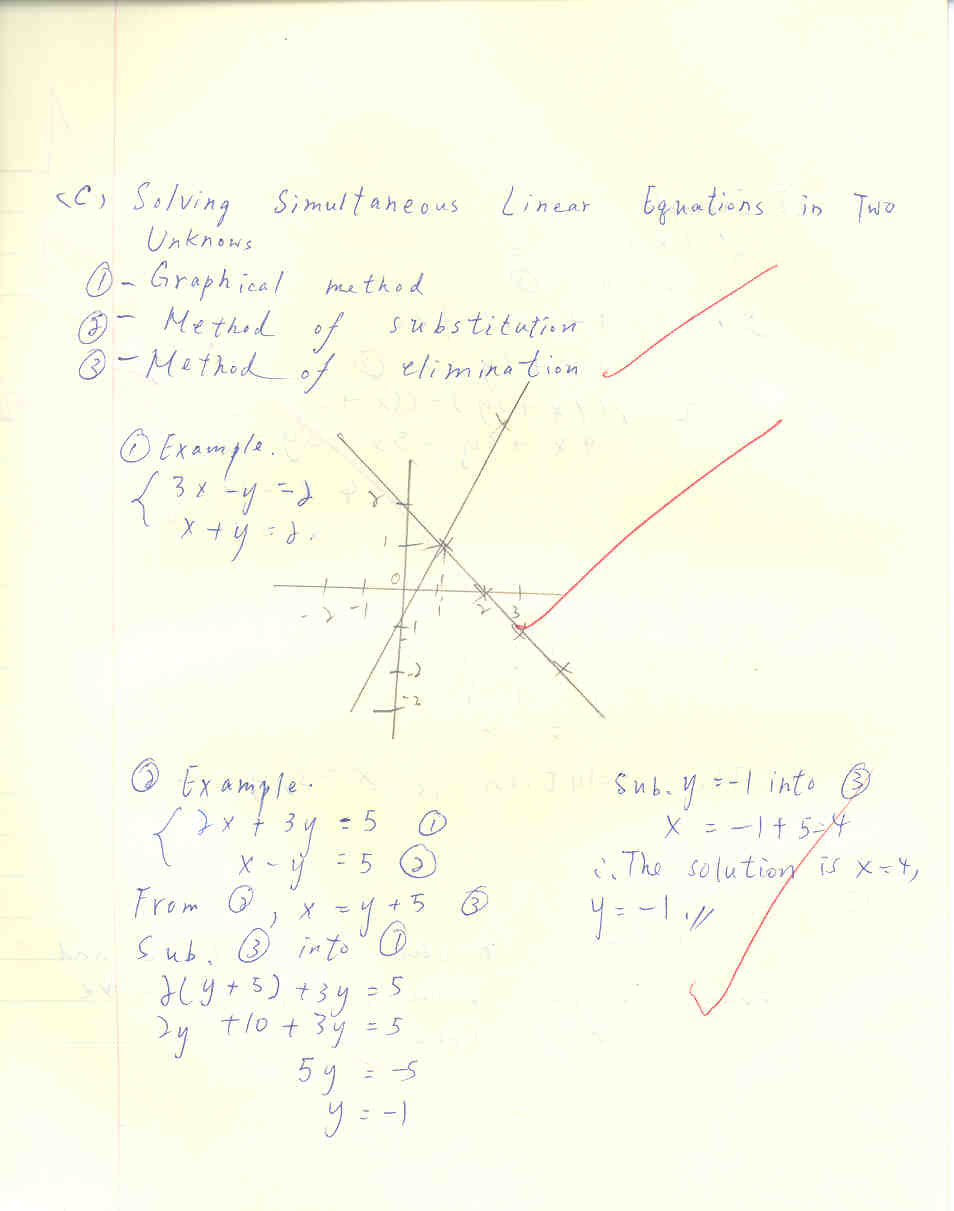 (C) Solving Simultaneous Linear Equations in Two
Unknows
① - Graphical method
② - Method of substitution
③ - Method of elimination
① Example.
{ 3x - y = 2
x + y = 2.
2
1
0
-2 -1 1 2 3
-1
-2
-3
② Example.
{ 2x + 3y = 5 ①
x - y = 5 ②
From ②, x = y + 5 ③
Sub. ③ into ①
2(y + 5) + 3y = 5
2y + 10 + 3y = 5
5y = -5
y = -1
Sub. y = -1 into ③
x = -1 + 5 = 4
∴ The solution is x = 4,
y = -1 //